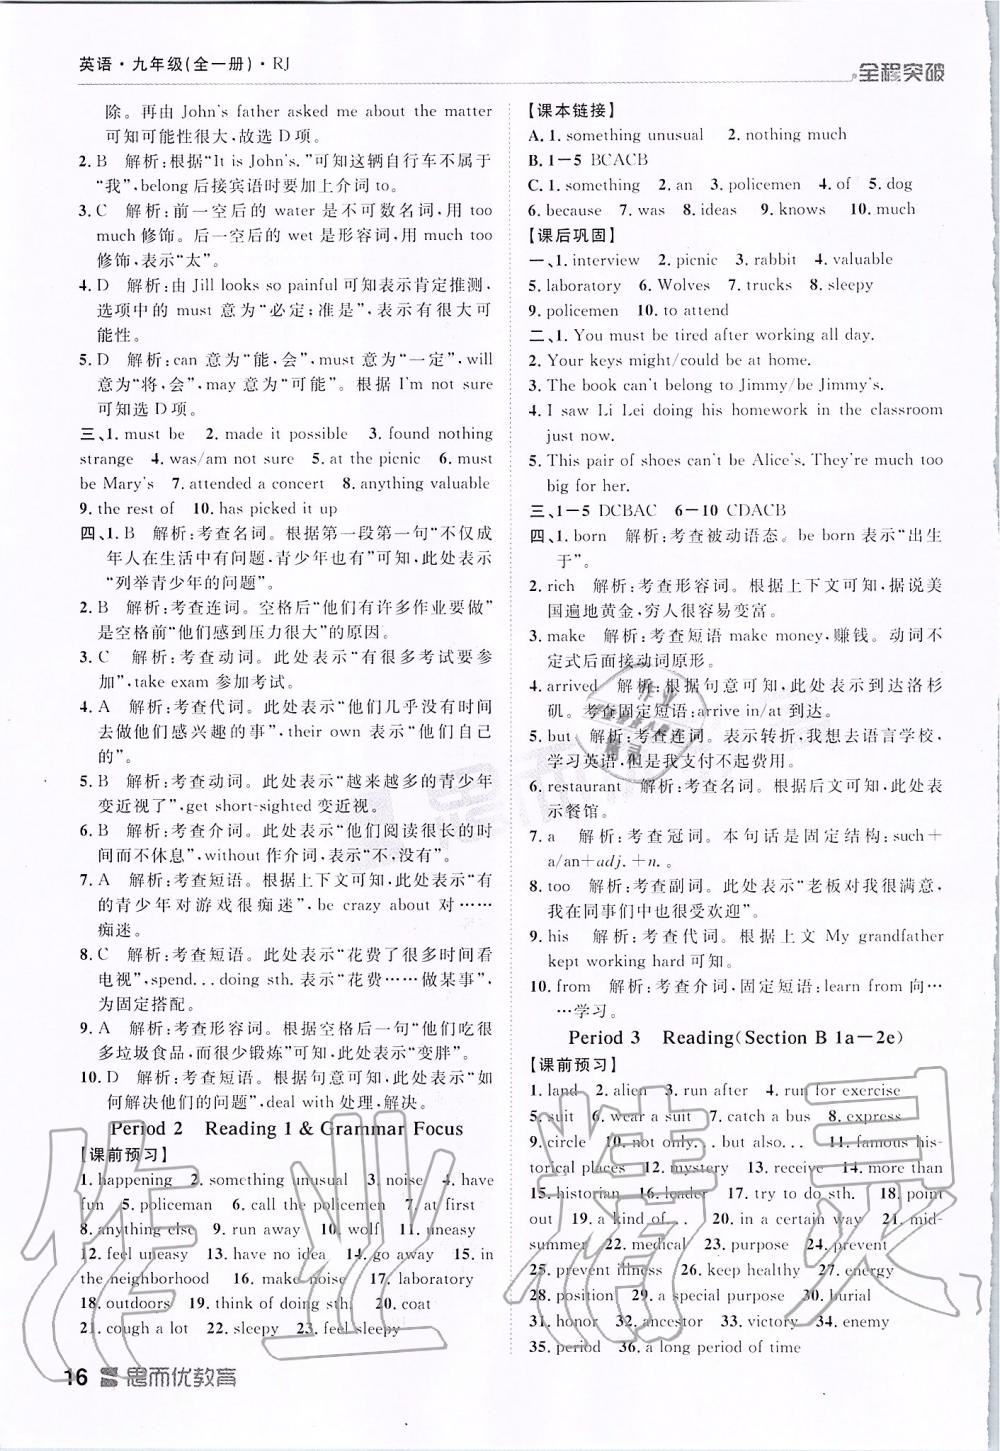 英语·九年级(全一册)·RJ
全程突破
除。再由 John's father asked me about the matter
可知可能性很大,故选 D 项。
2. B 解析:根据“It is John's.”可知这辆自行车不属于
“我”,belong 后接宾语时要加上介词 to。
3. C 解析:前一空后的 water 是不可数名词,用 too
much 修饰。后一空后的 wet 是形容词,用 much too
修饰,表示“太”。
4. D 解析:由 Jill looks so painful 可知表示肯定推测,
选项中的 must 意为“必定;准是”,表示有很大可
能性。
5. D 解析:can 意为“能,会”,must 意为“一定”,will
意为“将,会”,may 意为“可能”。根据 I'm not sure
可知选 D 项。
三、1. must be 2. made it possible 3. found nothing
strange 4. was/am not sure 5. at the picnic 6. must
be Mary's 7. attended a concert 8. anything valuable
9. the rest of 10. has picked it up
四、1. B 解析:考查名词。根据第一段第一句“不仅成
年人在生活中有问题,青少年也有”可知,此处表示
“列举青少年的问题”。
2. B 解析:考查连词。空格后“他们有许多作业要做”
是空格前“他们感到压力很大”的原因。
3. C 解析:考查动词。此处表示“有很多考试要参
加”,take exam 参加考试。
4. A 解析:考查代词。此处表示“他们几乎没有时间
去做他们感兴趣的事”,their own 表示“他们自己
的”。
5. B 解析:考查动词。此处表示“越来越多的青少年
变近视了”,get short-sighted 变近视。
6. B 解析:考查介词。此处表示“他们阅读很长的时
间而不休息”,without 作介词,表示“不,没有”。
7. A 解析:考查短语。根据上下文可知,此处表示“有
的青少年对游戏很痴迷”,be crazy about 对……
痴迷。
8. C 解析:考查短语。此处表示“花费了很多时间看
电视”,spend... doing sth. 表示“花费……做某事”,
为固定搭配。
9. A 解析:考查形容词。根据空格后一句“他们吃很
多垃圾食品,而很少锻炼”可知,此处表示“变胖”。
10. D 解析:考查短语。根据句意可知,此处表示“如
何解决他们的问题”,deal with 处理,解决。
Period 2 Reading 1 & Grammar Focus
【课前预习】
1. happening 2. something unusual 3. noise 4. have
fun 5. policeman 6. call the policemen 7. at first
8. anything else 9. run away 10. wolf 11. uneasy
12. feel uneasy 13. have no idea 14. go away 15. in
the neighborhood 16. make noise 17. laboratory
18. outdoors 19. think of doing sth. 20. coat
21. cough a lot 22. sleepy 23. feel sleepy
16 思而优教育
【课本链接】
A. 1. something unusual 2. nothing much
B. 1-5 BCACB
C. 1. something 2. an 3. policemen 4. of 5. dog
6. because 7. was 8. ideas 9. knows 10. much
【课后巩固】
一、1. interview 2. picnic 3. rabbit 4. valuable
5. laboratory 6. Wolves 7. trucks 8. sleepy
9. policemen 10. to attend
二、1. You must be tired after working all day.
2. Your keys might/could be at home.
3. The book can't belong to Jimmy/be Jimmy's.
4. I saw Li Lei doing his homework in the classroom
just now.
5. This pair of shoes can't be Alice's. They're much too
big for her.
三、1-5 DCBAC 6-10 CDACB
四、1. born 解析:考查被动语态。be born 表示“出生
于”。
2. rich 解析:考查形容词。根据上下文可知,据说美
国遍地黄金,穷人很容易变富。
3. make 解析:考查短语 make money,赚钱。动词不
定式后面接动词原形。
4. arrived 解析:根据句意可知,此处表示到达洛杉
矶。考查固定短语:arrive in/at 到达。
5. but 解析:考查连词。表示转折,我想去语言学校,
学习英语,但是我支付不起费用。
6. restaurant 解析:考查名词。根据后文可知,此处表
示餐馆。
7. a 解析:考查冠词。本句话是固定结构:such+
a/an+adj.+n.。
8. too 解析:考查副词。此处表示“老板对我很满意,
我在同事们中也很受欢迎”。
9. his 解析:考查代词。根据上文 My grandfather
kept working hard 可知。
10. from 解析:考查介词,固定短语:learn from 向…
…学习。
Period 3 Reading(Section B 1a-2e)
【课前预习】
1. land 2. alien 3. run after 4. run for exercise
5. suit 6. wear a suit 7. catch a bus 8. express
9. circle 10. not only... but also... 11. famous his-
torical places 12. mystery 13. receive 14. more than
15. historian 16. leader 17. try to do sth. 18. point
out 19. a kind of... 20. in a certain way 21. mid-
summer 22. medical 23. purpose 24. prevent
25. prevent illness 26. keep healthy 27. energy
28. position 29. a special purpose 30. burial
31. honor 32. ancestor 33. victory 34. enemy
35. period 36. a long period of time
作业精灵